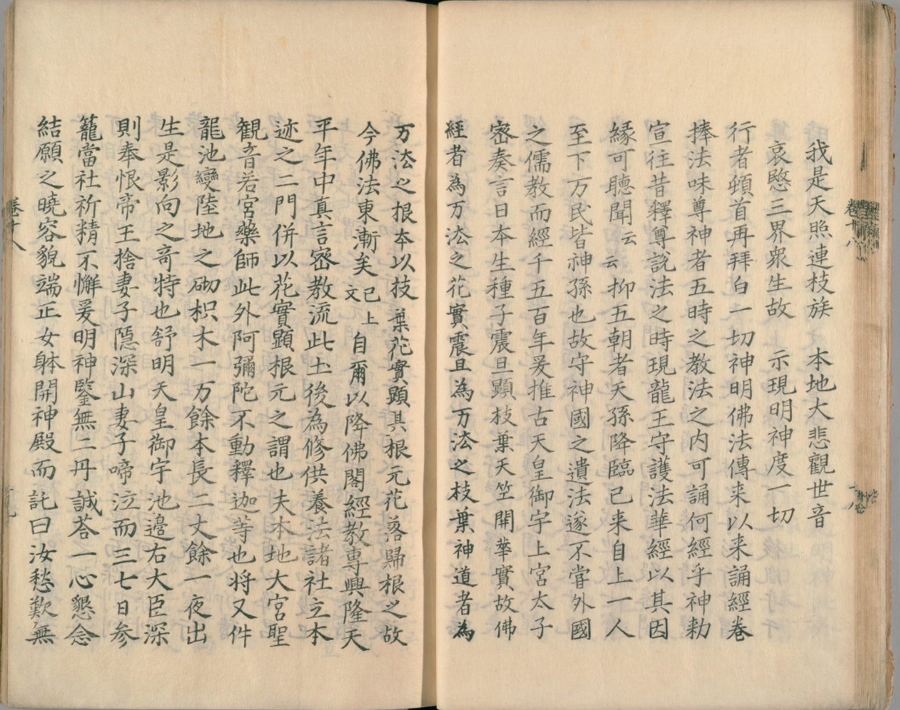 我是天照連枝族　本地大悲觀世音
哀愍三界衆生故　示現明神度一切
行者頓首再拜白一切神明佛法傳来以来誦經卷
捧法味尊神者五時之教法之内可誦何經乎神勅
宣往昔釋尊說法之時現龍王守護法華經以其因
緣可聽聞云云抑五朝者天孫降臨已来自上一人
至下万民皆神孫也故守神國之遺法遂不嘗外國
之儒教而經千五百年爰推古天皇御宇上宮太子
密奏言日本生種子震旦顕枝葉天竺開華實故佛
經者為万法之花實震旦為万法之枝葉神道者為
万法之根本以枝葉花實顕其根元花落歸根之故
今佛法東漸矣已上文自爾以降佛閣經教專興隆天
平年中真言密教流此土後為修供養法諸社立本
迹之二門併以花實顕根元之謂也夫本地大宮聖
観音若宮藥師此外阿彌陀不動釋迦等也将又件
龍池變陸地之砌枳木一万餘本長二丈餘一夜出
生是影向之竒特也舒明天皇御宇池邉右大臣深
則奉恨帝王捨妻子隱深山妻子啼泣而三七日参
籠當社祈精不懈爰明神鑒無二丹誠荅一心懇念
結願之曉容貌端正女躰開神殿而託曰汝愁歎無